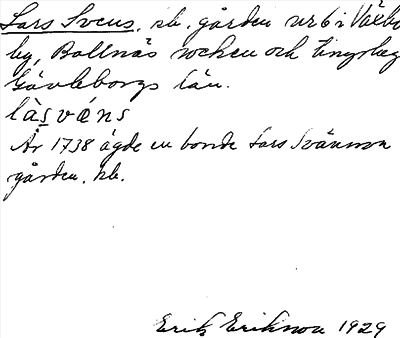 Lars Svens, sb. gården nr 6 i Växbo
by, Bollnäs socken och tingslag
Gävleborgs län.
làsvéns
År 1738 ägde en bonde Lars Svänson
gården. sb.
Erik Erikson 1929